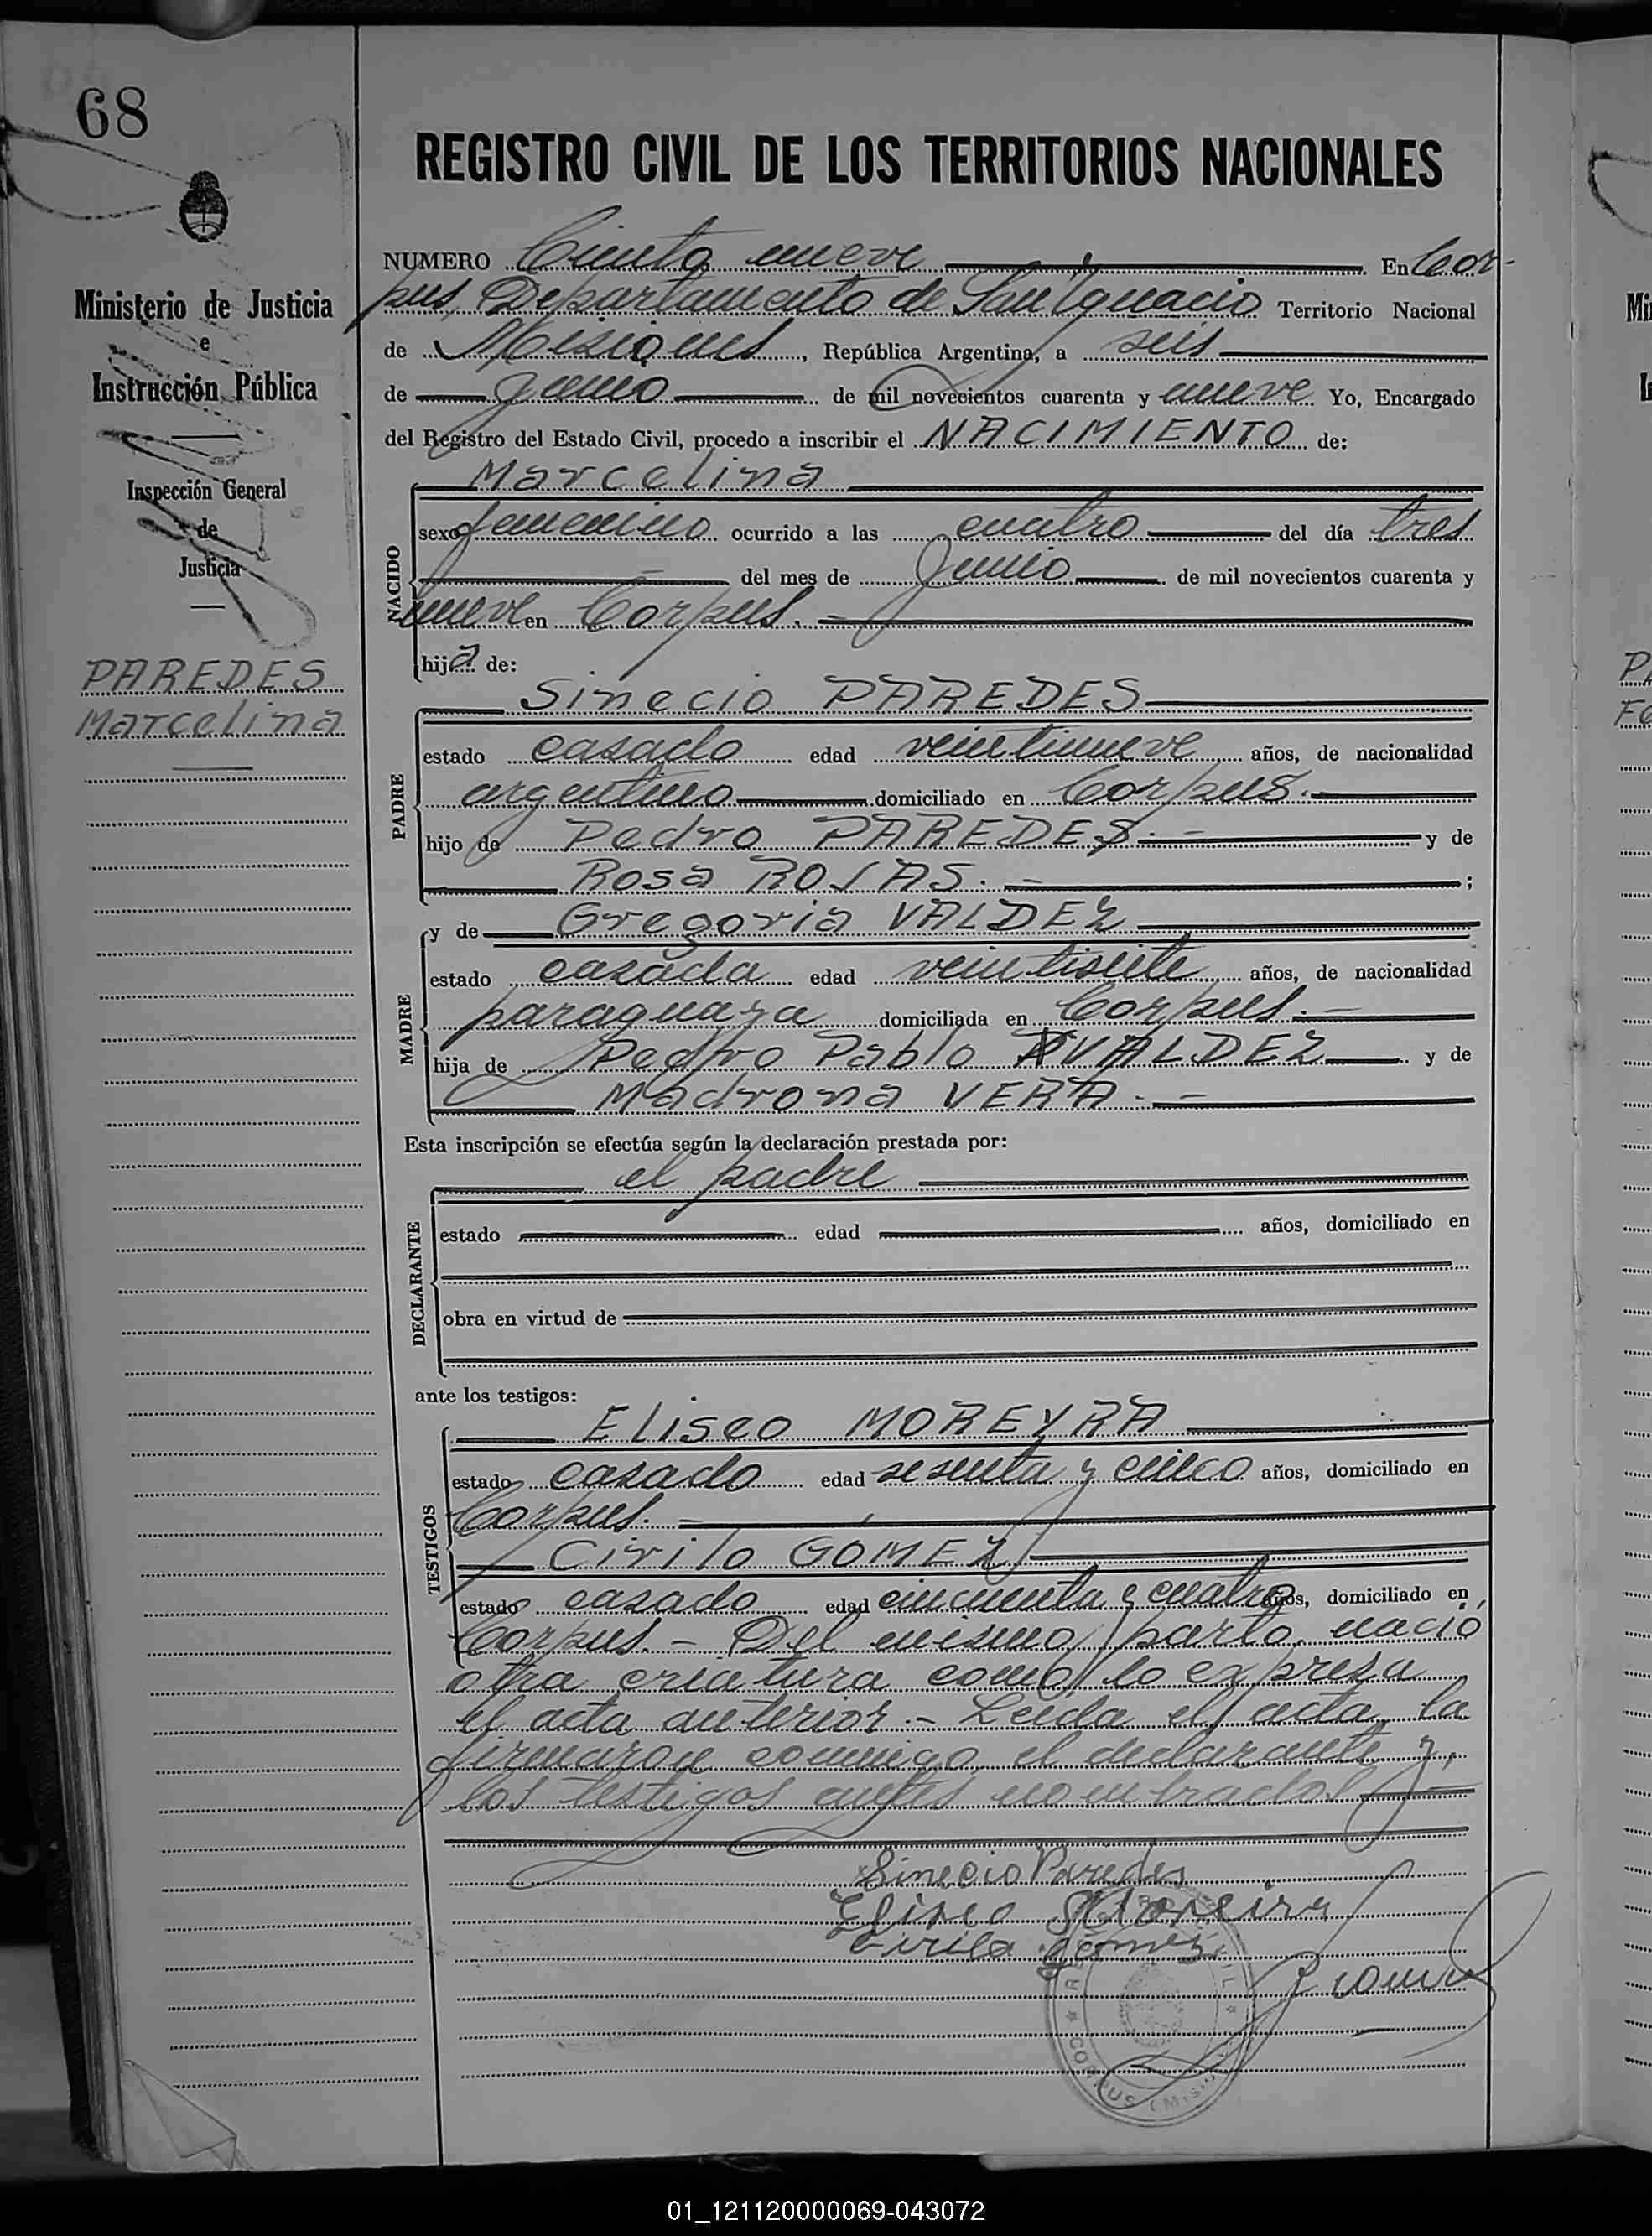 68
REGISTRO CIVIL DE LOS TERRITORIOS NACIONALES
Ministerio de Justicia
e
Instrucción Pública
Inspección General
de
Justicia
PAREDES
Marcelina
NUMERO Ciento nueve En Cor-
pus, Departamento de San Ignacio Territorio Nacional
de Misiones, República Argentina, a seis
de junio de mil novecientos cuarenta y nueve Yo, Encargado
del Registro del Estado Civil, procedo a inscribir el NACIMIENTO de:
Marcelina
NACIDO
sexo femenino ocurrido a las cuatro del día tres
del mes de Junio de mil novecientos cuarenta y
nueve en Corpus.-
hija de:
Sinecio PAREDES
PADRE
estado casado edad veintinueve años, de nacionalidad
argentino domiciliado en Corpus.
hijo de Pedro PAREDES.- y de
Rosa ROJAS.- ;
y de Gregoria VALDEZ
MADRE
estado casada edad veintisiete años, de nacionalidad
paraguaya domiciliada en Corpus.-
hija de Pedro Pablo VALDEZ y de
Madrona VERA.-
Esta inscripción se efectúa según la declaración prestada por:
el padre
DECLARANTE
estado edad años, domiciliado en
obra en virtud de
ante los testigos:
Eliseo MOREYRA
TESTIGOS
estado casado edad sesenta y cinco años, domiciliado en
Corpus.-
Cirilo GOMEZ
estado casado edad cincuenta y cuatro años, domiciliado en
Corpus.- Del mismo parto, nació
otra criatura como lo expresa
el acta anterior.- Leída el acta, la
firmaron conmigo, el declarante y
los testigos antes nombrados.-
Sinecio Paredes
Eliseo Moreira
Cirilo Gomez
CORPUS (MISIONES)
01_121120000069-043072